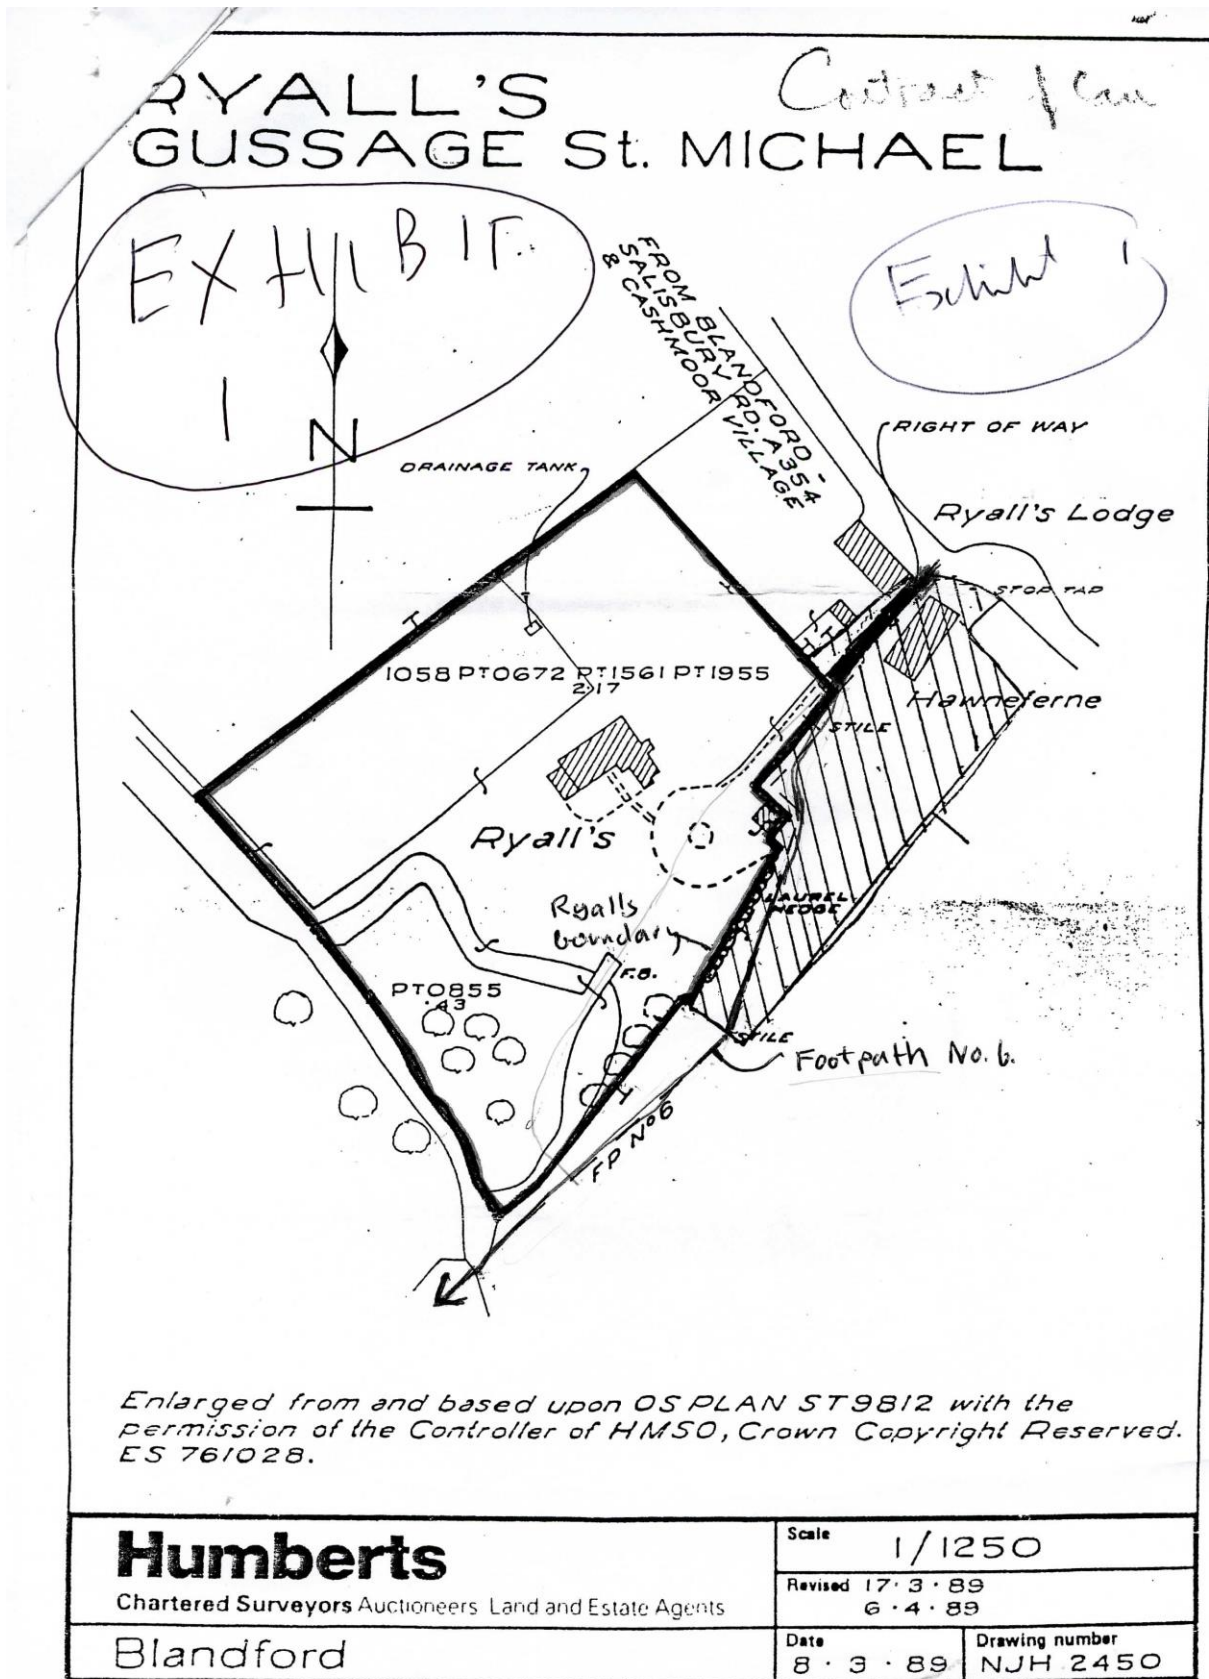 RYALL'S
GUSSAGE St. MICHAEL
Contract Plan
EXHIBIT
1
Exhibit 1
N
FROM BLANDFORD -
SALISBURY RD. A354
& CASHMOOR VILLAGE
RIGHT OF WAY
DRAINAGE TANK
Ryall's Lodge
STOP TAP
1058 PT0672 PT1561 PT1955
2·17
Hawneferne
STILE
Ryall's
LAUREL
HEDGE
Ryalls
boundary
F.B.
PT0855
·43
STILE
Footpath No. 6.
FP No6
Enlarged from and based upon OS PLAN ST9812 with the
permission of the Controller of HMSO, Crown Copyright Reserved.
ES 761028.
Humberts
Chartered Surveyors Auctioneers Land and Estate Agents
Blandford
Scale 1/1250
Revised 17·3·89
6·4·89
Date
8·3·89
Drawing number
NJH 2450